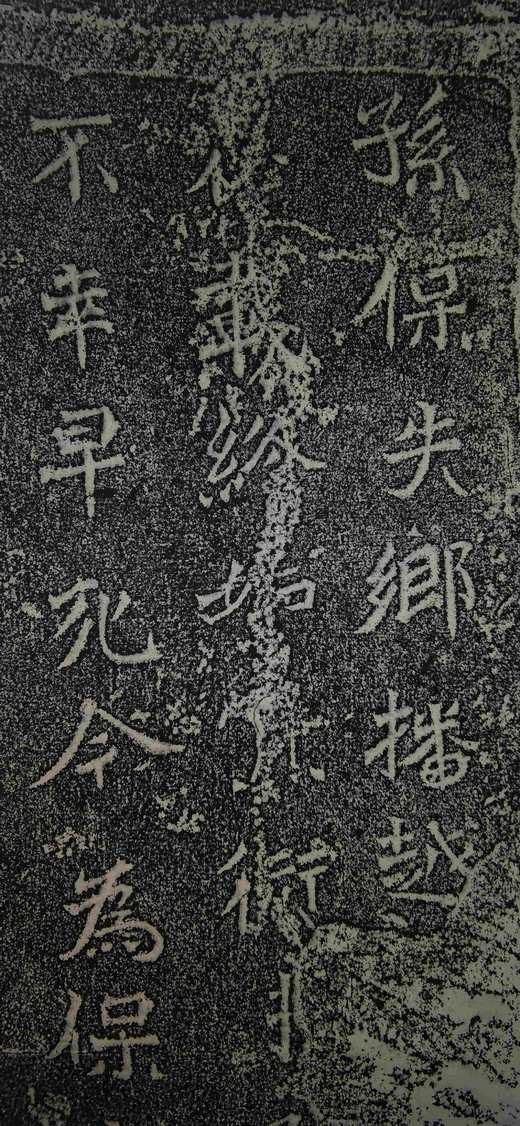 孫保失鄉播越
載紛衍
不幸早死今為保